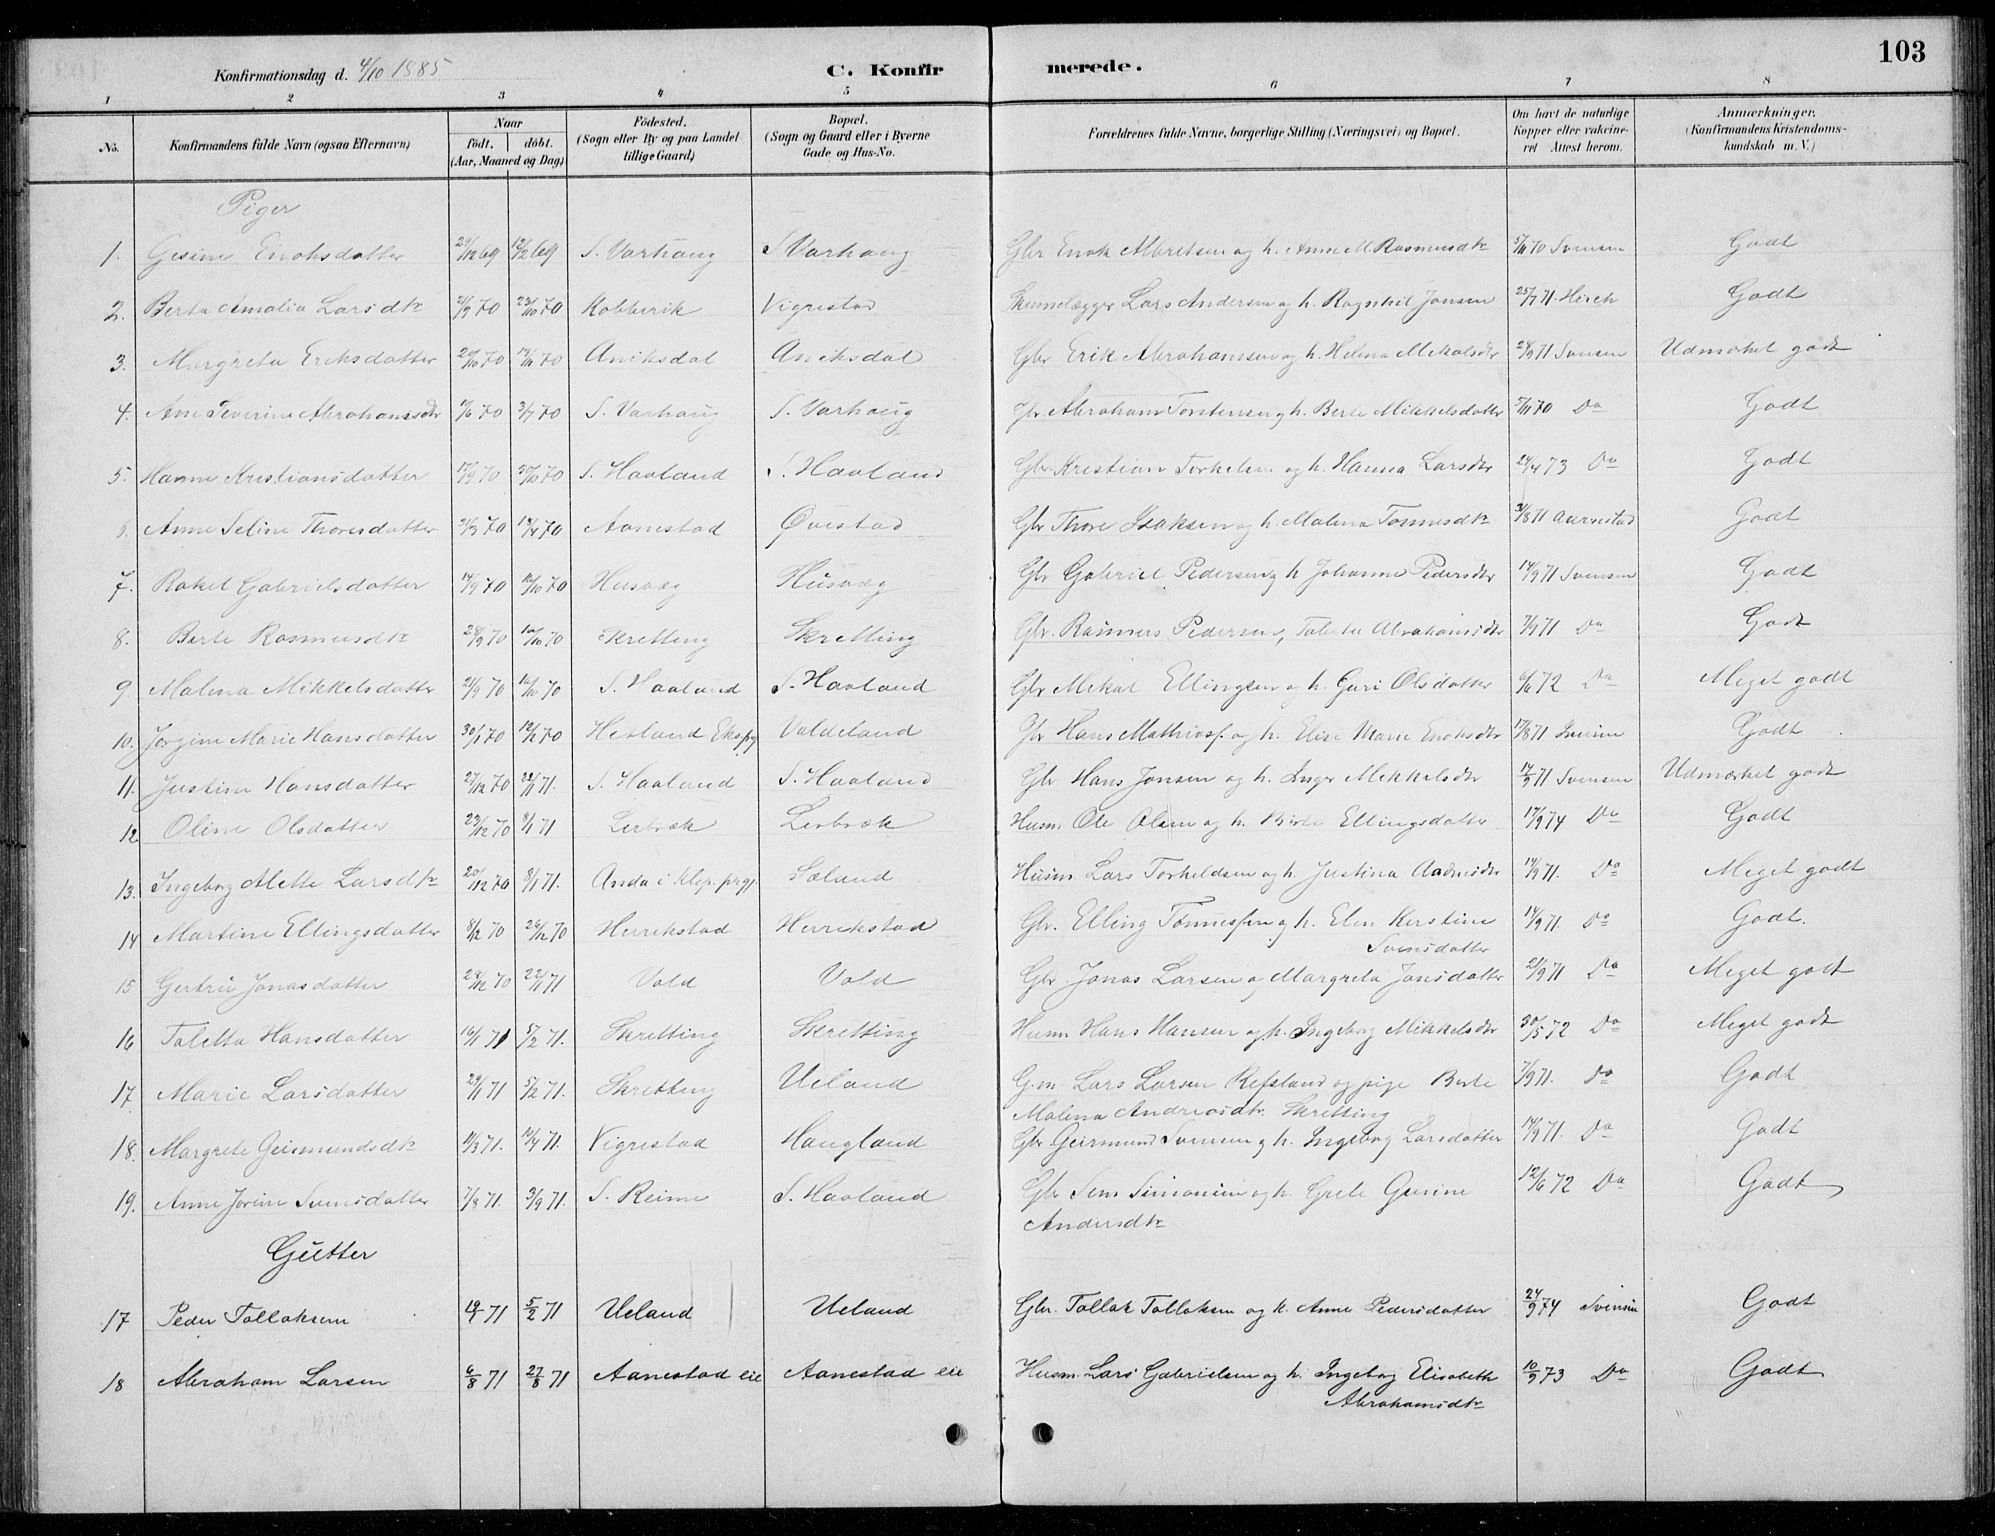 103
Konfirmationsdag d. 4/10 1885 C. Konfirmerede.
1 2 3 4 5 6 7 8
No. Konfirmandens fulde Navn (ogsaa Efternavn) Naar født. døbt. (Aar, Maaned og Dag) Fødested. (Sogn eller By og paa Landet tillige Gaard) Bopæl. (Sogn og Gaard eller i Byerne Gade og Hus-No. Forældrenes fulde Navne, borgerlige Stilling (Næringsvei) og Bopæl. Om havt de naturlige Kopper eller vakcineret Attest herom. Anmærkninger. (Konfirmandens Kristendomskundskab m. V.)
Piger
1. Gesine Enoksdatter 29/12 69 12/2 69 S. Varhaug S Varhaug Gbr Enok Abretsen og h. Anne M. Rasmusdtr 5/11 70 Svensen Godt
2. Berta Amalia Larsdtr 21/9 70 23/10 70 Kobbervik Vigrestad Lars Andersen og h. Ragnhil Jonsen 25/7 71. Hirch Godt
3. Margreta Eriksdatter 20/10 70 13/11 70 Aniksdal Aniksdal Gbr Erik Abrahamsen og h. Helena Mikalsdtr 28/9 71 Svensen Udmærket godt
4. Ane Severine Abrahamsdtr 11/6 70 3/7 70 S. Varhaug S. Varhaug Gbr Abraham Torstensen og h. Berte Mikkelsdatter 5/11 70 Do Godt
5. Hanne Kristiansdatter 17/9 70 30/10 70 S. Haaland S. Haaland Gbr. Kristian Torkelsen og h. Hanna Larsdtr 24/4 73 Do Godt
Anne Seline Thoresdatter 31/3 70 18/4 70 Aanestad Øvestad Gbr Thore Isaksen og h. Malena Tønnesdtr 31/8 71 Aarrestad Godt
7. Rakel Gabrielsdatter 14/9 70 16/10 70 Husvæg Husvæg Gbr Gabriel Pedersen og h Johanne Pedersdtr 14/9 71 Svensen Godt
8. Berte Rasmusdtr 28/9 70 16/10 70 Skretting Skretting Gbr. Rasmus Pedersen, Taletta Abrahamsdtr 7/9 71 Do Godt
9. Malena Mikkelsdatter 21/9 70 16/10 70 S. Haaland S. Haaland Gbr Mikal Ellingsen og h. Guri Olsdatter 6/6 72 Do Meget godt
10. Jørgine Marie Hansdatter 30/1 70 12/2 70 Hetland Valdeland Gbr Hans Mathias. og h. Elise Marie Enoksdtr 17/8 71 Godt
11. Justine Hansdatter 27/12 70 22/1 71. S. Haaland S. Haaland Gbr Hans Jonsen og h. Inger Mikkelsdtr 14/9 71 Svensen Udmærket godt
12 Oline Olsdatter 23/12 70 8/1 71 Lerbræk Lerbræk Husm. Ole Olsen og h. Berte Ellingsdatter 17/9 74 Do Godt
13. Ingeborg Alette Larsdtr 20/12 70 8/1 71. Anda i Klep prgj. Sæland Husm. Lars Torkeldsen og h. Justina Aadnesdtr 14/9 71. Do Meget godt
14 Martine Ellingsdatter 8/12 70 26/12 70 Herrekstad Herrekstad Gbr. Elling Tønnessen og h. Elen Kerstine Svensdatter 14/9 71. Do Godt.
15 Gertrú Jonasdatter 28/12 70 22/1 71 Vold Vold Gbr. Jonas Larsen og Margreta Jonsdatter 21/9 71 Do Meget godt
16 Taletta Hansdatter 16/1 71 5/2 71. Skretting Skretting Husm Hans Hansen og h. Ingeborg Mikkelsdtr 30/5 72 Do Meget godt
17. Marie Larsdatter 29/1 71 5/2 71. Skretting Ueland G.m. Lars Larsen Refsland og pige Berte Malena Andreasdtr. Skretting 7/9 71. Do Godt
18. Margrete Geirmundsdtr 11/3 71. 10/4 71. Vigrestad Haugland Gbr Geirmund Svensen og h. Ingeborg Larsdatter 14/9 71. Do Godt
19. Anne Jorine Svensdatter 7/8 71. 3/9 71. S. Reime S. Haaland Gbr Sven Simonsen og h. Grete Gurine Andersdtr 12/6 72 Do Godt
Gutter
17 Peder Tollaksen 19/1 71 5/2 71 Ueland Ueland Gbr. Tollak Tollaksen og h. Anne Pedersdatter 24/9 74 Svensen Godt
18 Abraham Larsen 6/8 71 27/8 71 Aanestad eie Aanestad eie Husm. Lars Gabrielsen og h. Ingeborg Elisabeth Abrahamsdtr 10/9 73 Do Godt